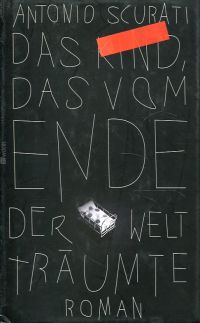 ANTONIO SCURATI
DAS KIND,
DAS VOM
ENDE
DER WELT
TRÄUMTE
ROMAN